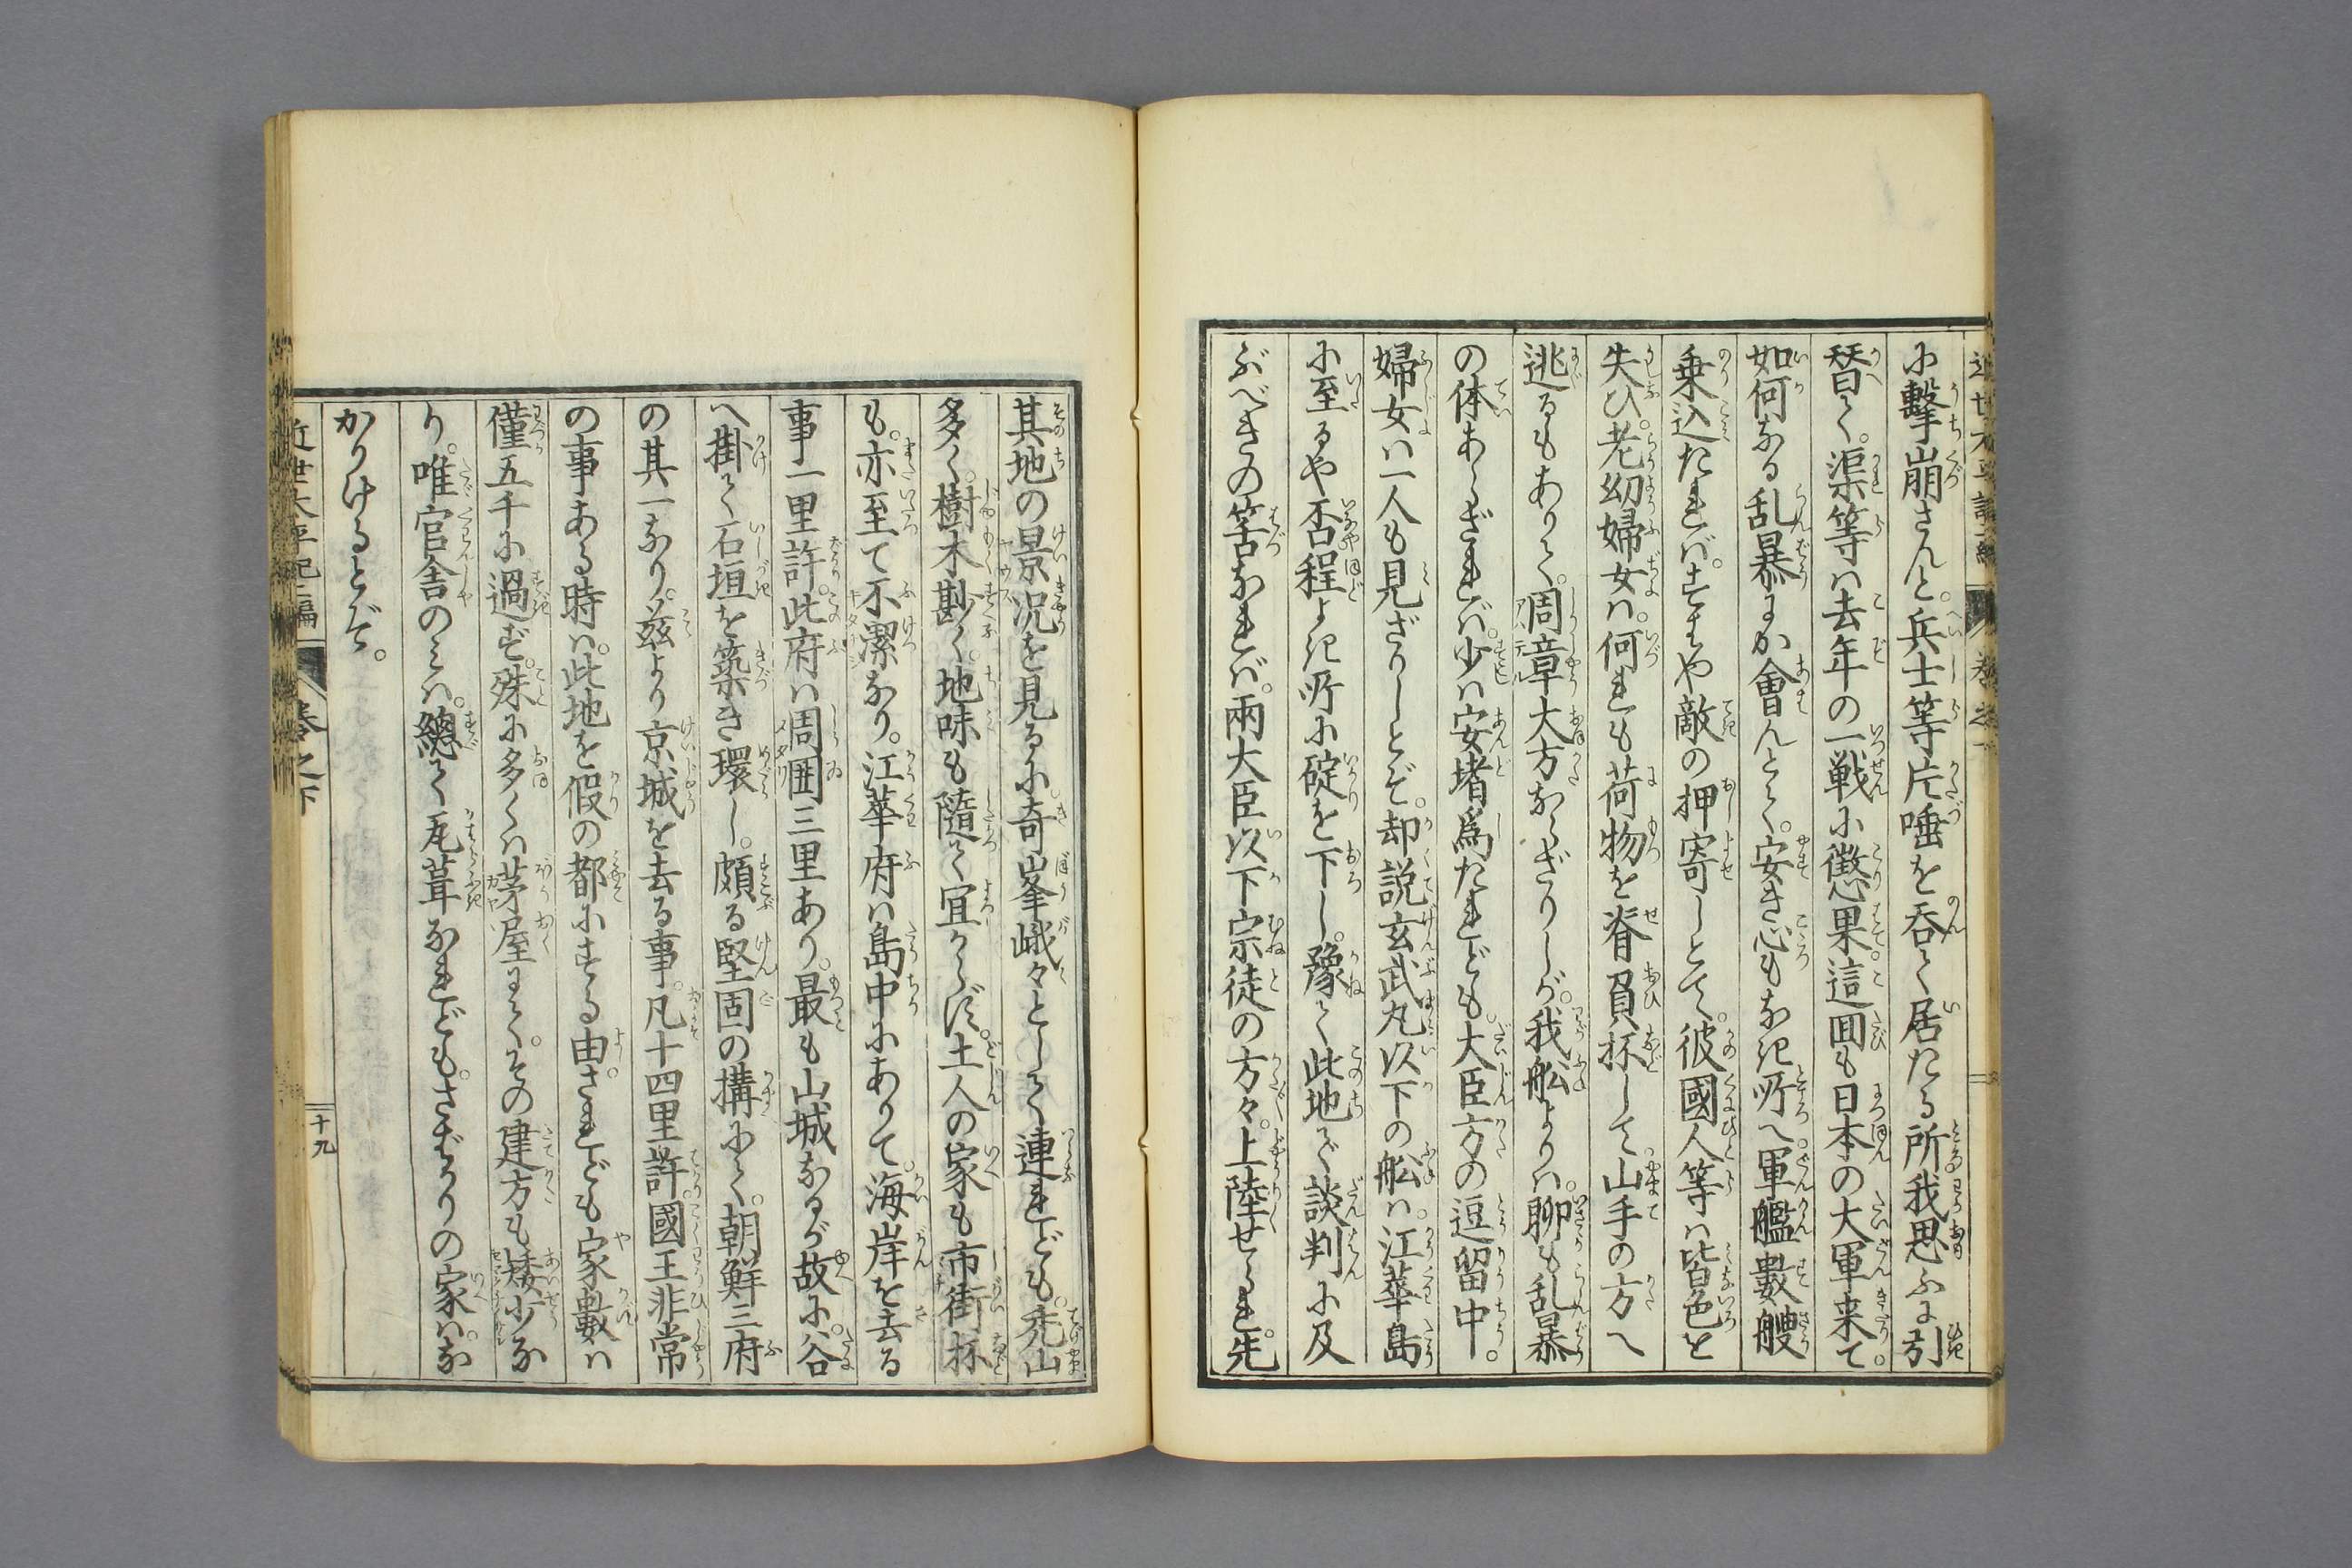 に擊崩さんと。兵士等片唾を呑て居たる所我思ふに引
替て。渠等は去年の一戦に懲果。這囬も日本の大軍来て
如何なる乱暴にか會んとて。安き心もなき所へ。軍艦數艘
乗込たれば。すはや敵の押寄しとて。彼國人等は皆色を
失ひ。老幼婦女は。何れも荷物を脊負抔して山手の方へ
逃るもありて。周章大方ならざりしが。我舩よりは。聊も乱暴
の体あらざれば。少は安堵為たれども。大臣方の逗留中。
婦女は一人も見ざりしとぞ。却説玄武丸以下の舩は。江華島
に至るや否程よき所に碇を下し。豫て此地で談判に及
ぶべきの筈なれば。兩大臣以下宗徒の方々。上陸せられ。先
其地の景况を見るに。奇峯峨々として連れども。禿山
多く。樹木尠く。地味も隨て宜からず。土人の家も市街抔
も。亦至て不潔なり。江華府は島中にありて。海岸を去る
事一里許。此府は周囲三里あり。最も山城なるが故に。谷
へ掛て石垣を築き環し。頗る堅固の構にて。朝鮮三府
の其一なり。茲より京城を去る事。凡十四里許。國王非常
の事ある時は。此地を假の都にする由。されども家數は
僅五千に過ず。殊に多くは茅屋にて。その建方も矮少な
り。唯官舎のみは。總て瓦葺なれども。さばかりの家はな
かりけるとぞ。
近世太平記二編
巻之下
十九